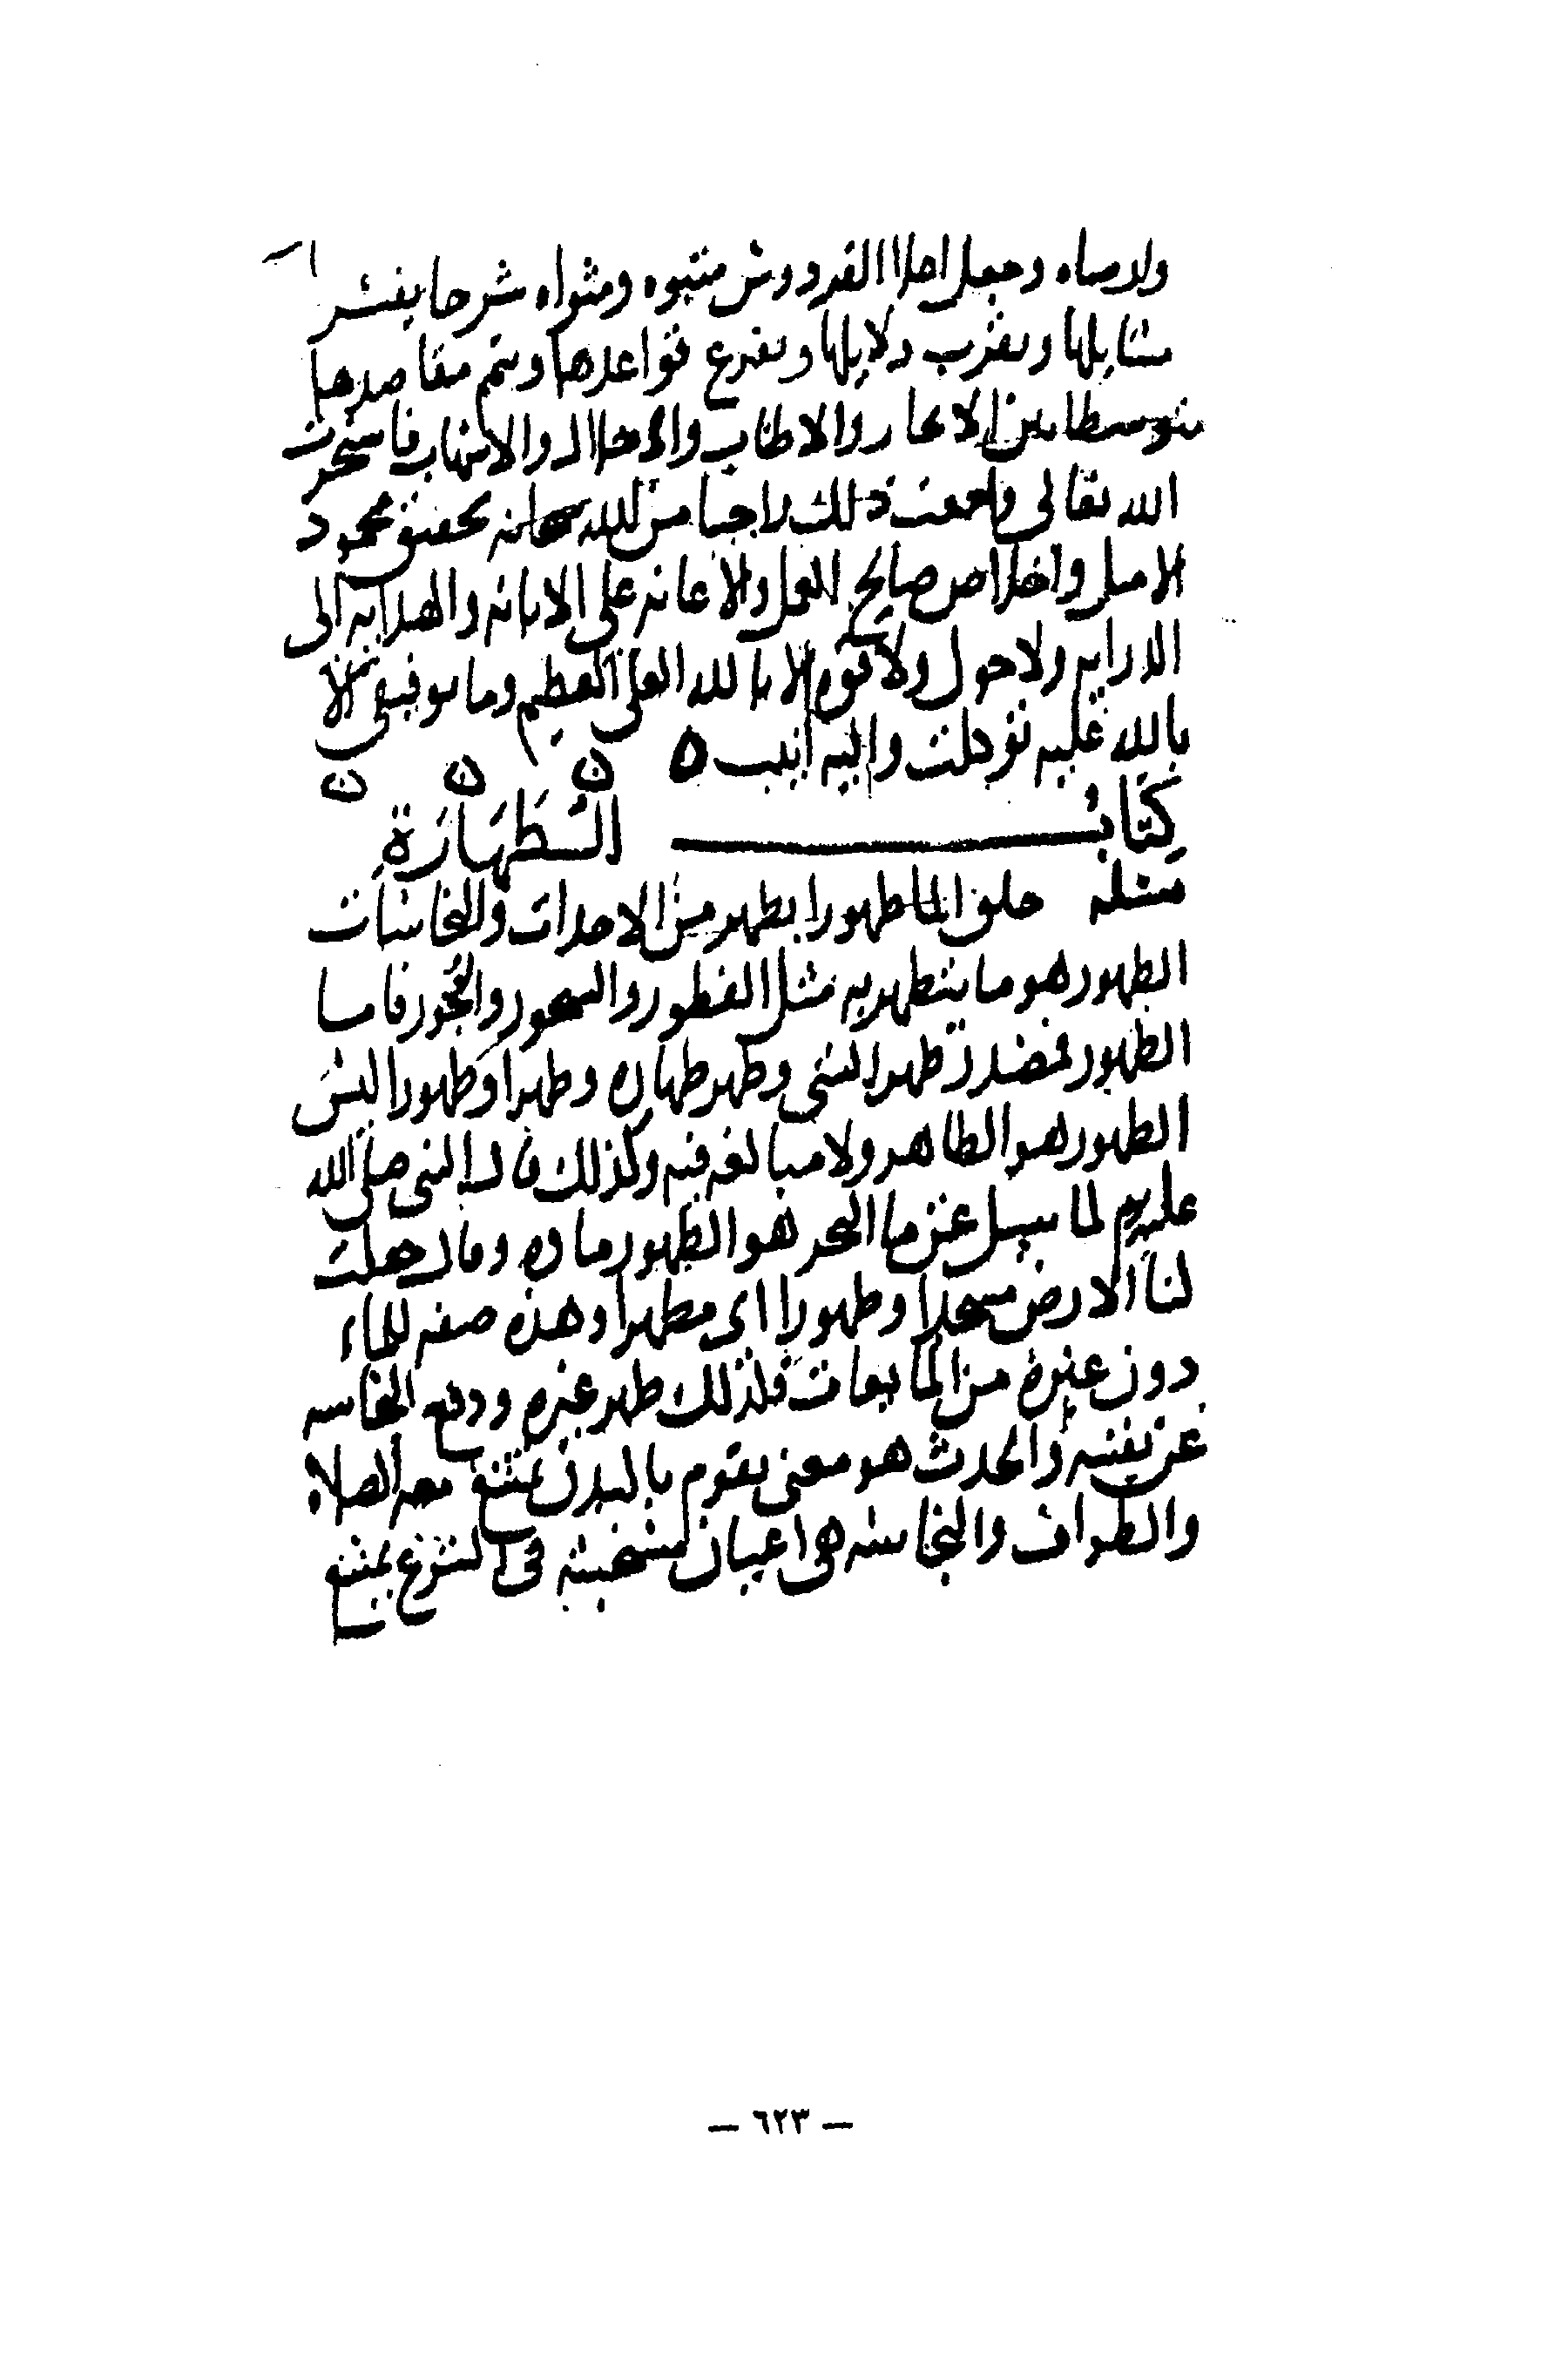 وارصاه وجعل اعلا الفردوس متبوه ومثواه شرحا يفسر
مسايلها ويقرب دلايلها ويفرع قواعدها ويتم مقاصدها
متوسطا بين الايجاز والاطناب والاخلال والاسهاب فاستخرت
الله تعالى وجمعت ذلك راجيا من الله سبحانه تحقيق محمود
الامل واخلاص صالح العمل والاعانه على الابانه والهدايه الى
الدرايه ولا حول ولا قوه الا بالله العلى العظيم وما توفيقى الا
بالله عليه توكلت واليه انيب ٥
كِتَابُ الطَّهَارَةِ
مسئله خلق الما طهورا يطهر من الاحداث والنجاسات
الطهور هو ما يتطهر به مثل الفطور والسحور والبخور فاما
الطهور فمصدر طهر الشى وطهر طهاره وطهرا وطهورا ليس
الطهور هو الطاهر ولا مبالغه فيه وكذلك قال النبى صلى الله
عليه لما سيل عن ما البحر هو الطهور ماوه وقال جعلت
لنا الارض مسجدا وطهورا اى مطهرا وهذه صفه للماء
دون غيره من المايعات فلذلك طهر غيره ودفع النجاسه
عن نفسه والحدث هو معنى يقوم بالبدن تمتنع معه الصلاه
والطواف والنجاسه هى اعيان مستخبثه فى الشرع يمتنع
— ٦٢٣ —